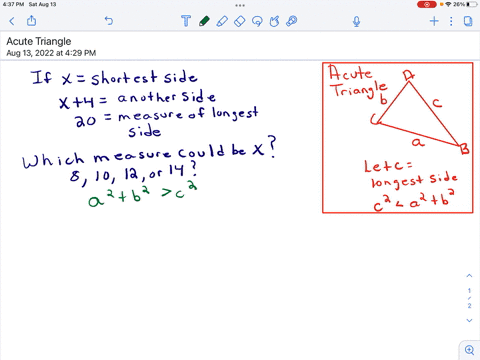 4:37 PM Sat Aug 13
26%
Acute Triangle
Aug 13, 2022 at 4:29 PM
If x = shortest side
x+4 = another side
20 = measure of longest
side
Which measure could be x?
8, 10, 12, or 14?
a² + b² > c²
Acute
Triangle
A
b
c
C
a
B
Let c =
longest side
c² < a² + b²
1
/
2